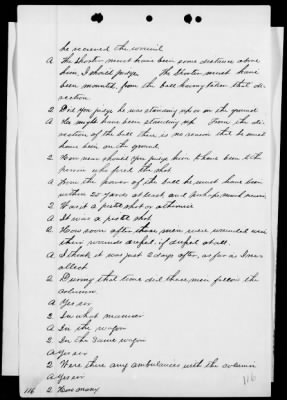 he received the wound
A The shooter must have been some distance above
him, I should judge. The shooter must have
been mounted, from the ball having taken that di-
rection
Q Did you judge he was standing up or on the ground
A He might have been standing up. From the di-
rection of the ball there is no reason that he must
have been on the ground
Q How near should you judge him to have been to the
person who fired the shot
A From the power of the ball he must have been
within 25 yards at least and perhaps much nearer
Q Was it a pistol shot or otherwise
A It was a pistol shot
Q How soon after these men were wounded were
their wounds dressed, if dressed at all.
A I think it was just 2 days after, as far as I re-
collect
Q During that time did these men follow the
column
A Yes sir
Q In what manner
A In the wagon
Q In the same wagon
A Yes sir
Q Were there any ambulances with the column
A Yes sir
Q How many
116
116